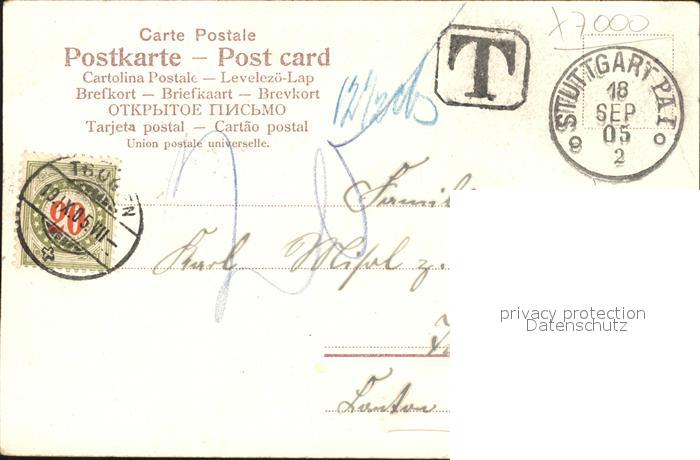 Carte Postale
Postkarte – Post card
Cartolina Postale — Levelező-Lap
Brefkort — Briefkaart — Brevkort
ОТКРЫТОЕ ПИСЬМО
Tarjeta postal — Cartão postal
Union postale universelle.
T
X7000
STUTTGART P.A.1
18
SEP
05
2
8 o
20
Famil
Karl z.
privacy protection
Datenschutz
Canton